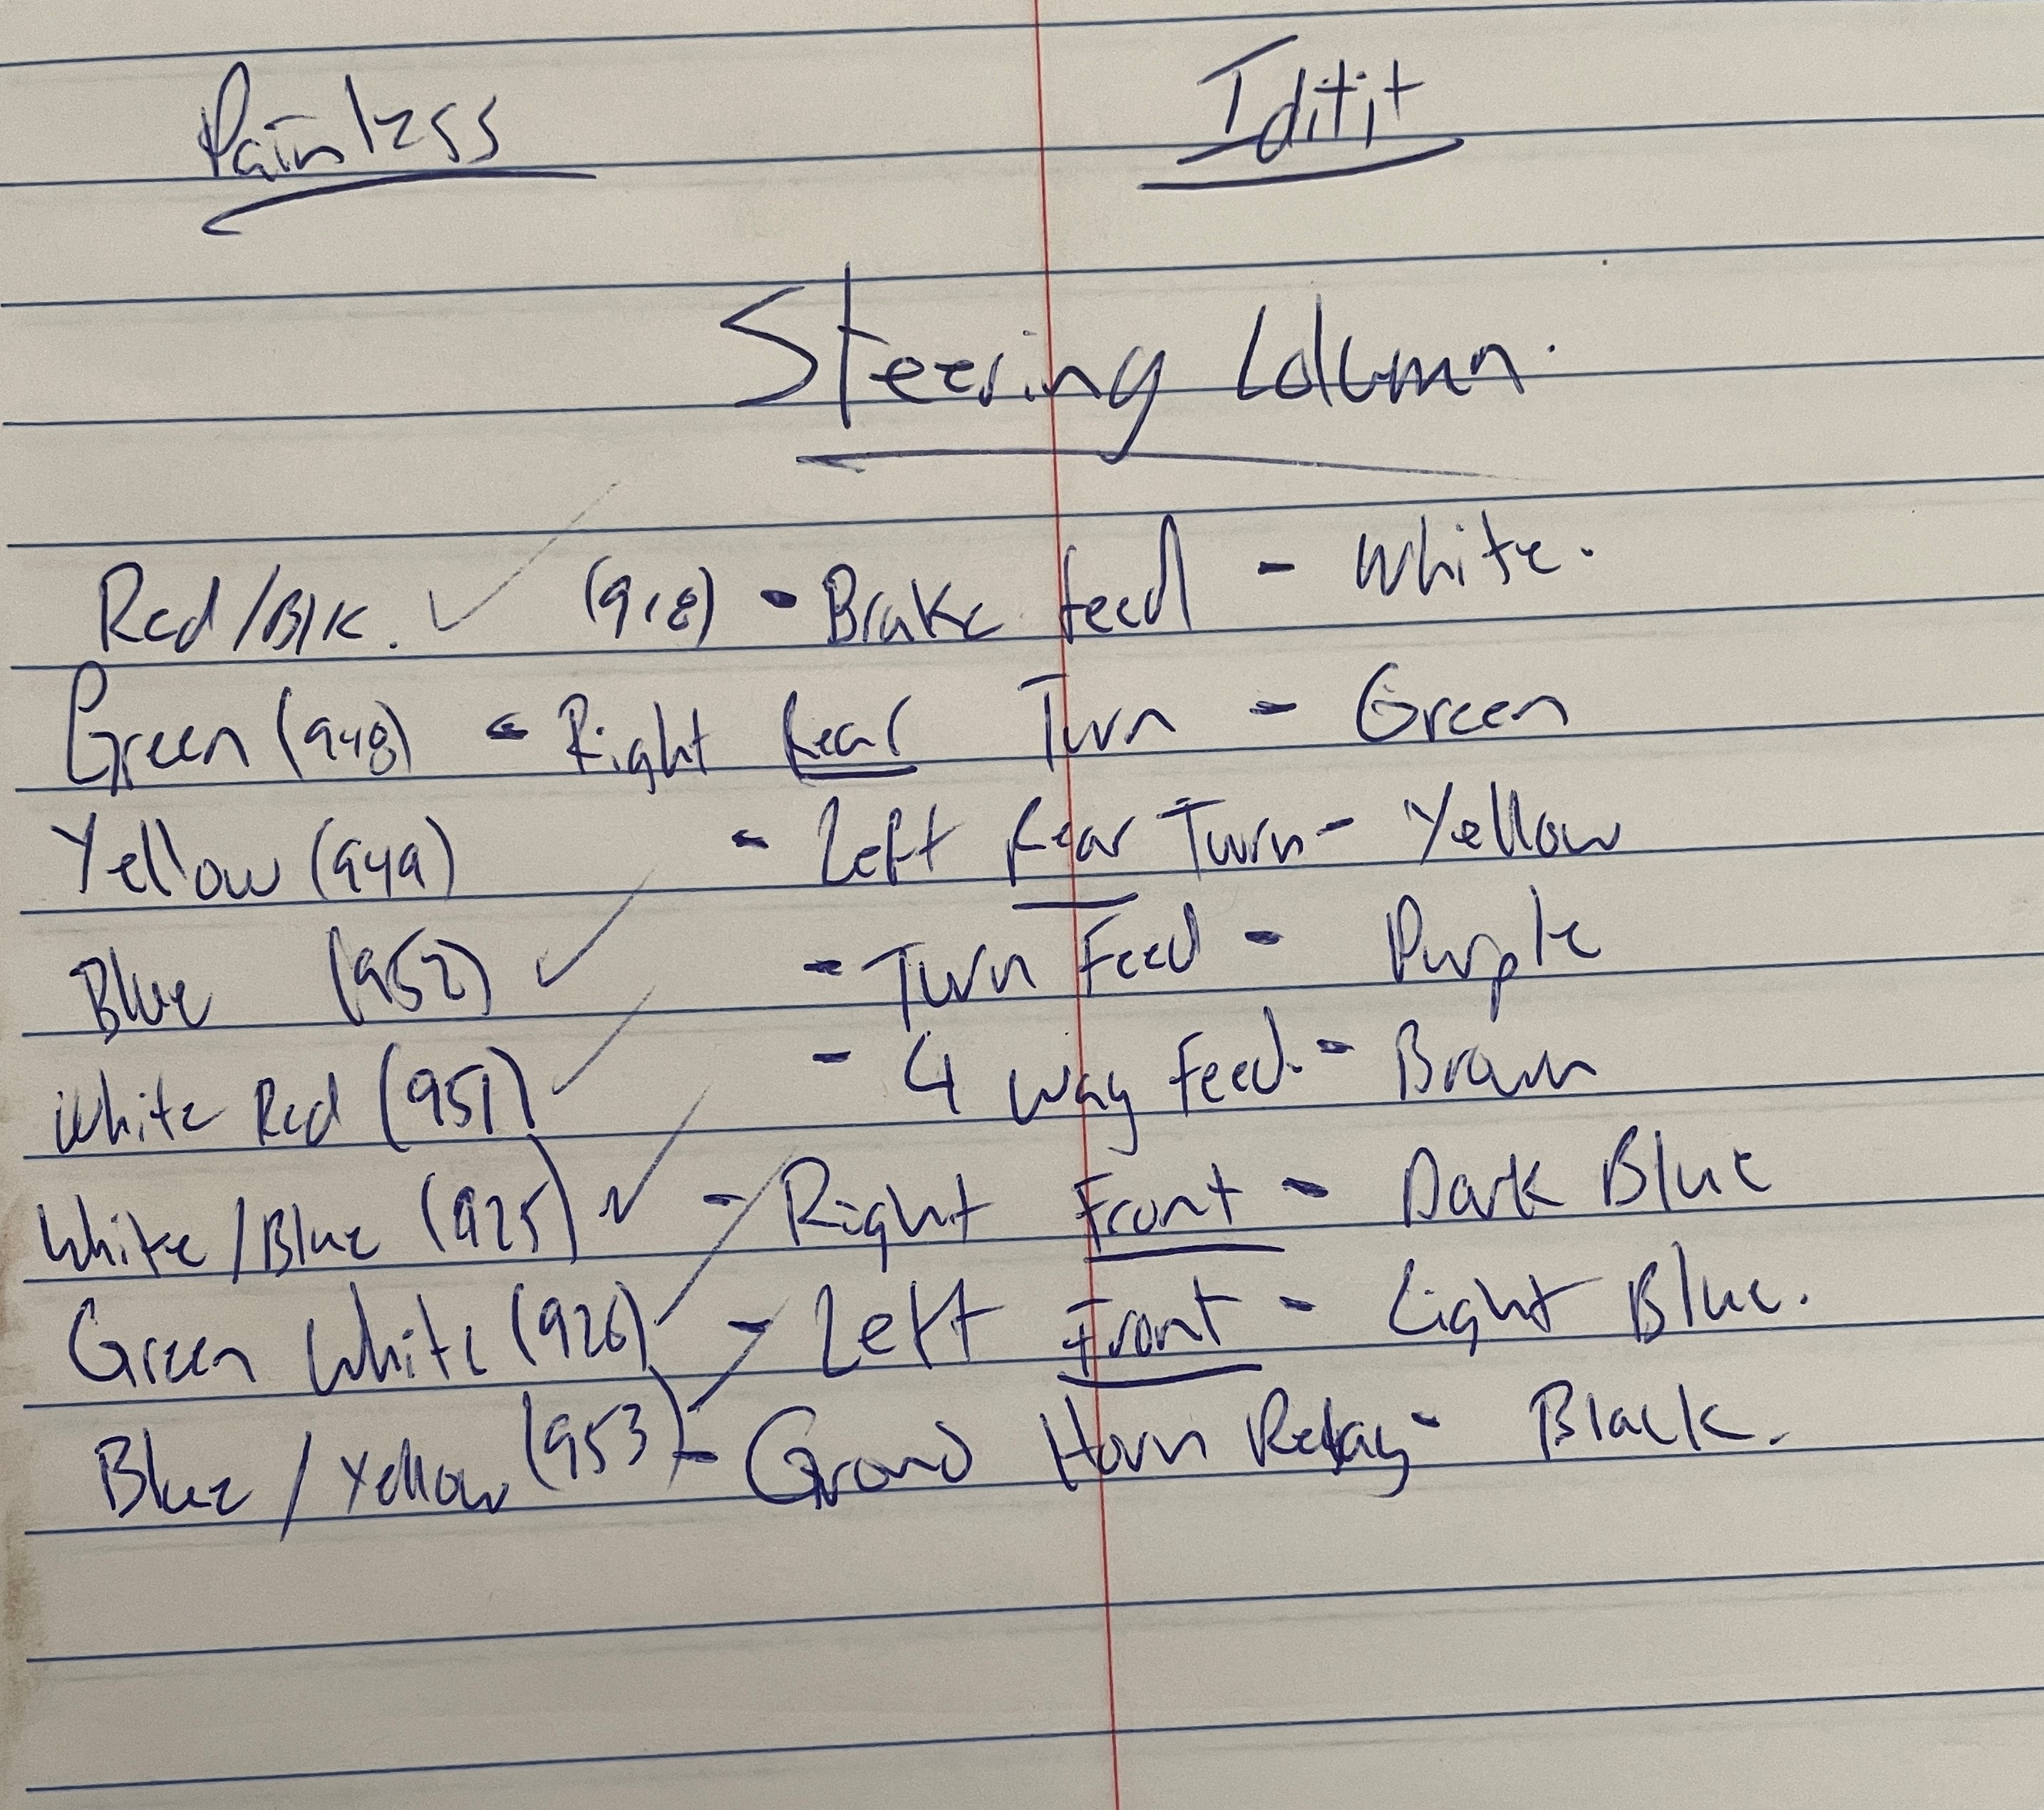 Painless Iditit
Steering Column.
Red/Blk. ✓ (918) - Brake feed - White.
Green (948) - Right Rear Turn - Green
Yellow (949) - Left Rear Turn - Yellow
Blue (952) ✓ - Turn Feed - Purple
White Red (951) ✓ - 4 way feed. - Brown
White/Blue (925) ✓ - Right Front - Dark Blue
Green White (926) ✓ - Left Front - Light Blue.
Blue/Yellow (953) ✓ - Ground Horn Relay - Black.